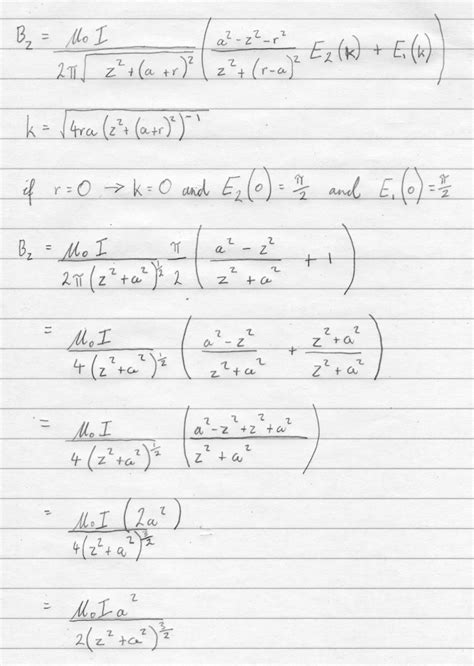 B_z = μ₀I / (2π√(z² + (a + r)²)) ( (a² - z² - r²) / (z² + (r-a)²) E₂(k) + E₁(k) )
k = √(4ra (z² + (a+r)²)⁻¹)
if r=0 → k=0 and E₂(0) = π/2 and E₁(0) = π/2
B_z = μ₀I / (2π (z² + a²)^½) π/2 ( (a² - z²) / (z² + a²) + 1 )
= μ₀I / (4 (z² + a²)^½) ( (a² - z²) / (z² + a²) + (z² + a²) / (z² + a²) )
= μ₀I / (4 (z² + a²)^½) ( (a² - z² + z² + a²) / (z² + a²) )
= μ₀I (2a²) / (4(z² + a²)^(3/2))
= μ₀I a² / (2(z² + a²)^(3/2))